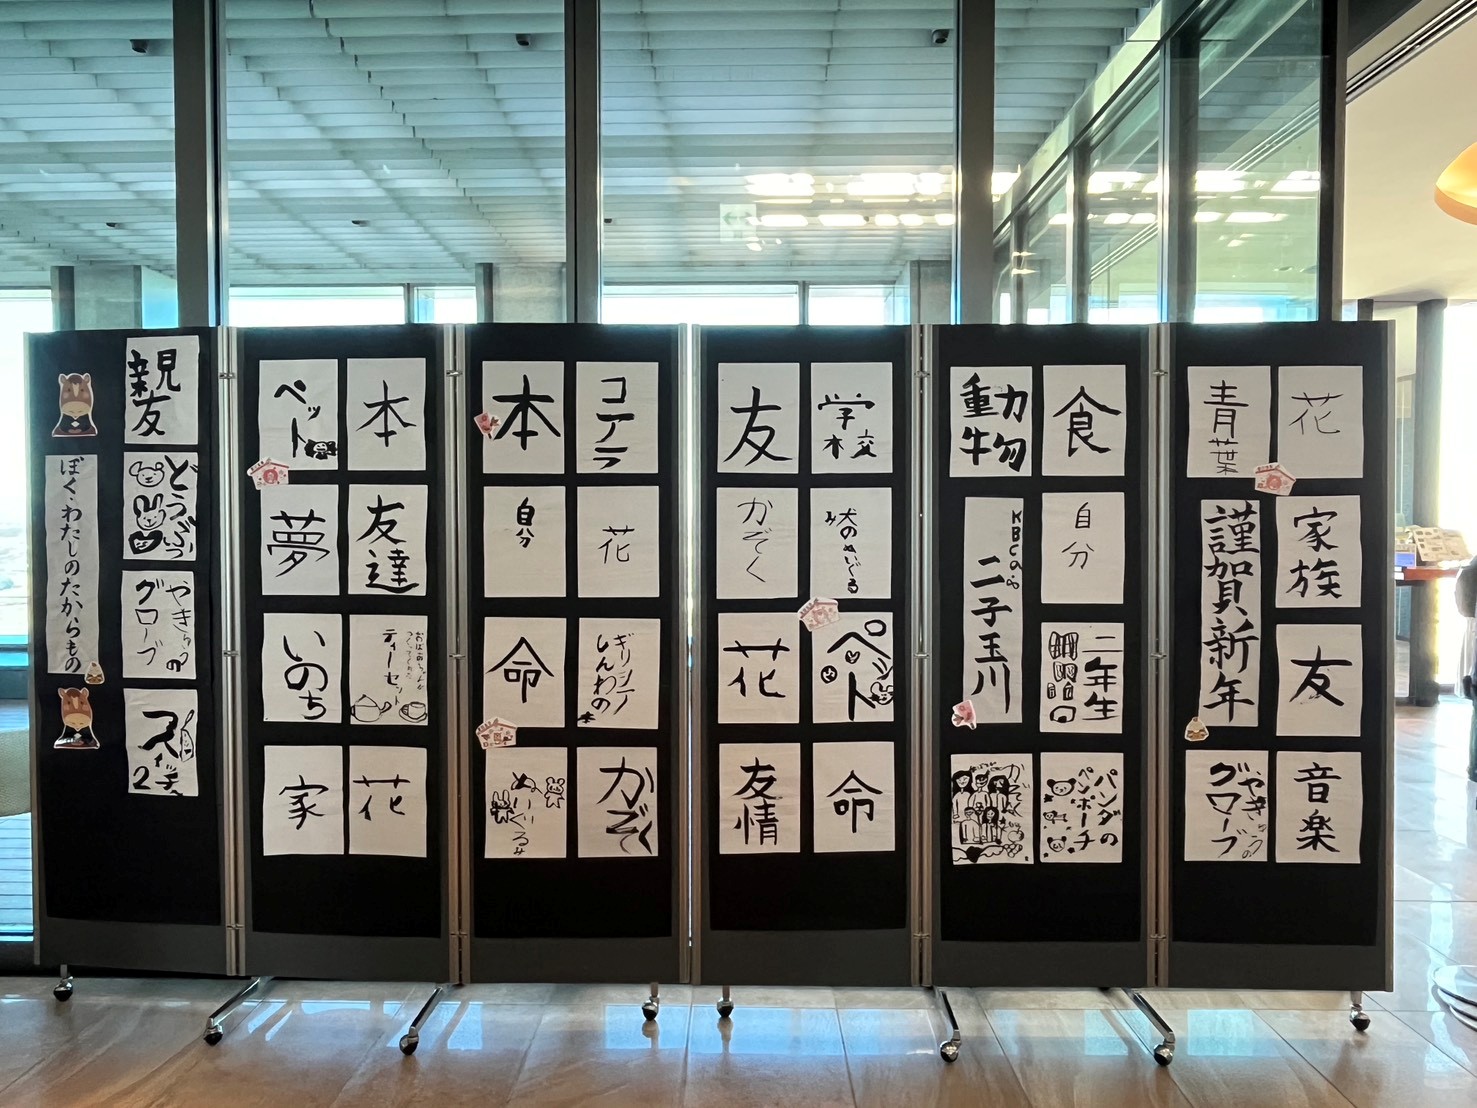 花
家族
友
音楽
青葉
謹賀新年
やきゅうの
グローブ
食
自分
二年生
パンダの
ペンポーチ
動物
KBCの
二子玉川
かぞく
学校
犬のぬいぐるみ
ペット
命
友
かぞく
花
友情
コアラ
花
ギリシャ
しんわの
かぞく
本
自分
命
ぬいぐるみ
本
友達
ティーセット
花
ペット
夢
いのち
家
親友
どうぶつ
やきゅうの
グローブ
スイッチ
2
ぼく・わたしのたからもの